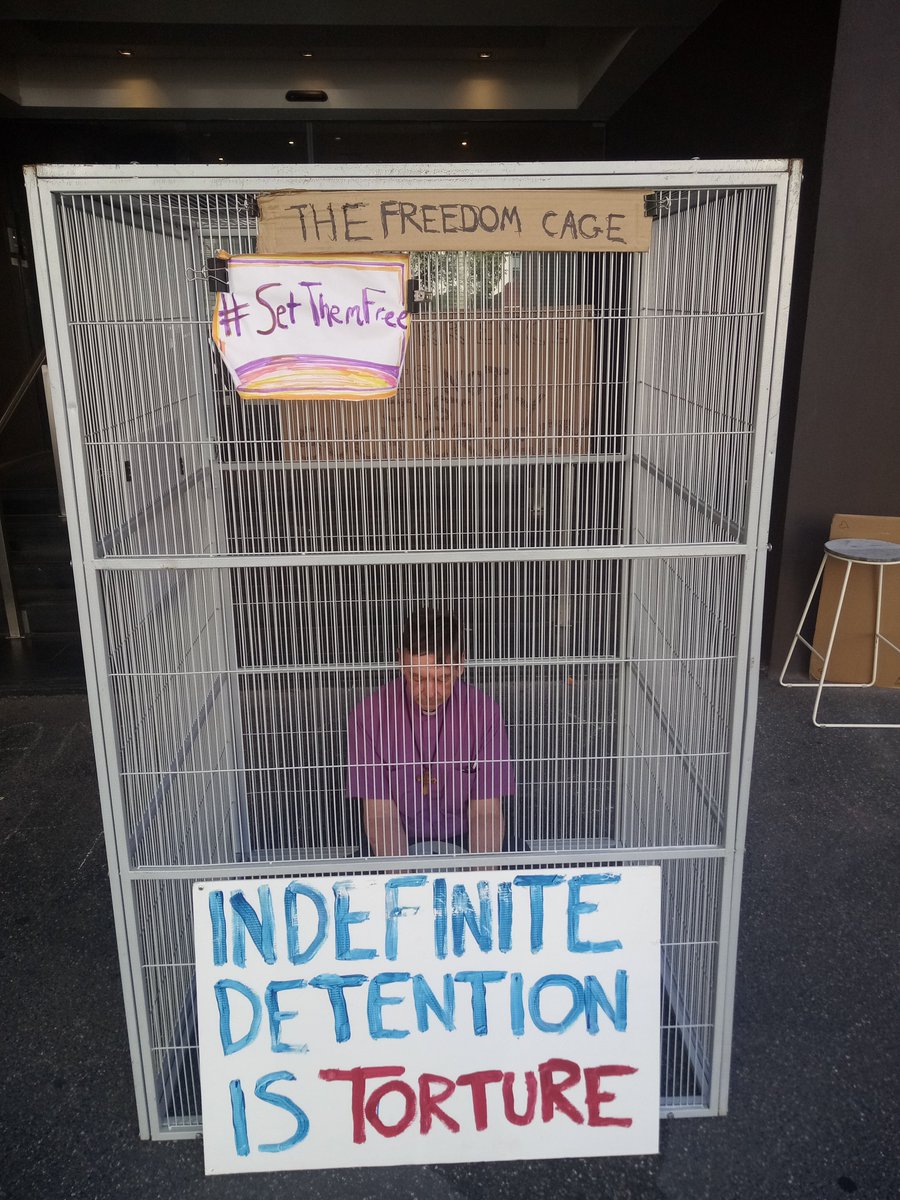 THE FREEDOM CAGE
#SetThemFree
INDEFINITE
DETENTION
IS TORTURE